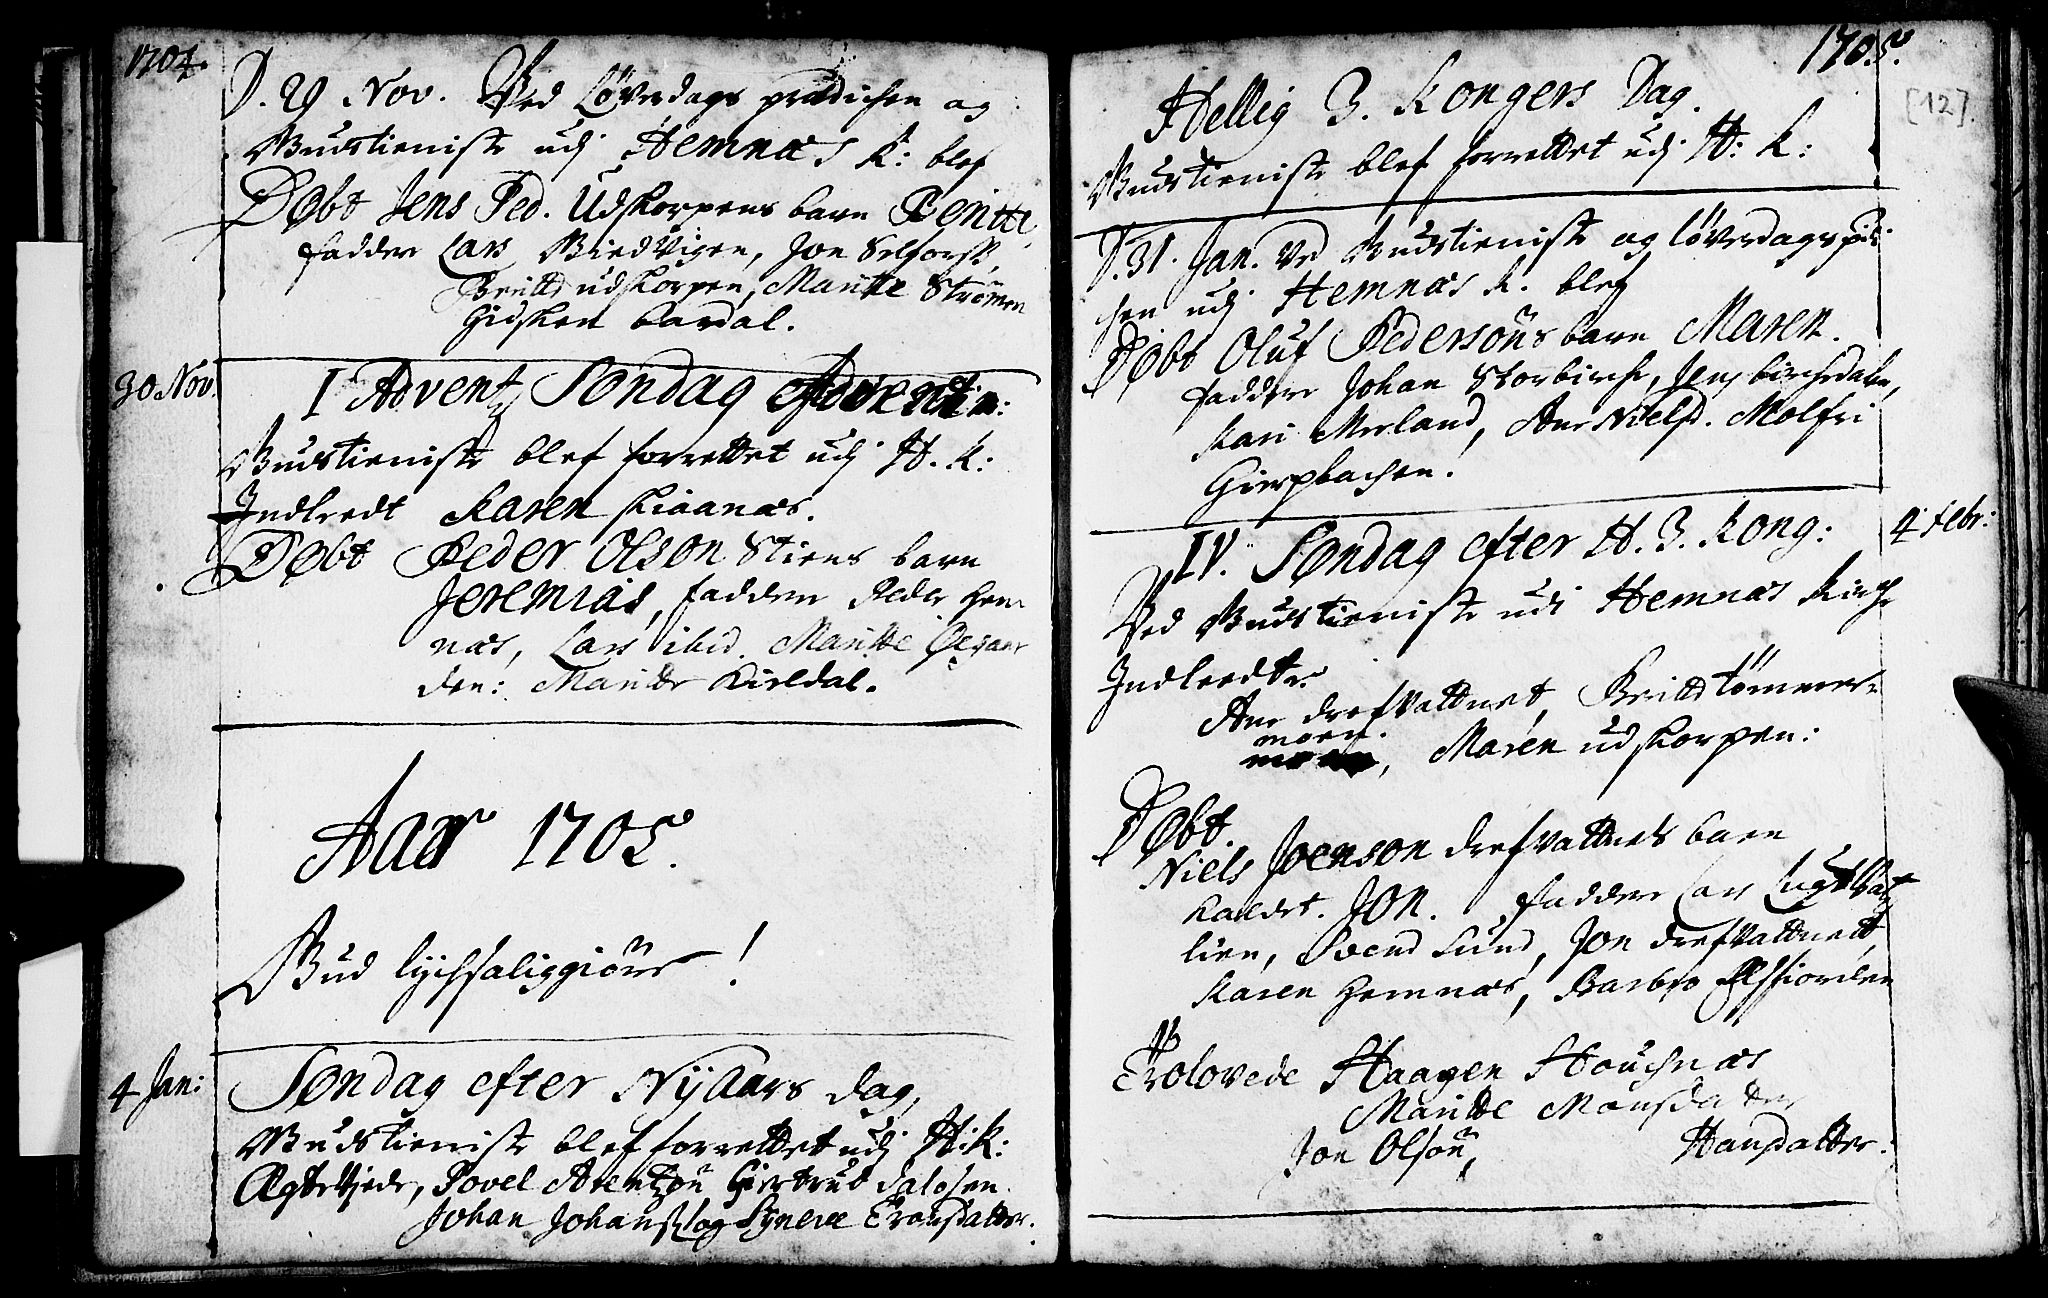 1704.
D. 29 Nov. Ved Løverdags prædichen og
Gudstieniste udj Hemnæs K: blef
Døbt Jens Ped. Udskorpens barn Benitte,
faddere Lars Biedvigen, Jon Selforss,
Britte udskorpen, Maritte Strømen
Gidsken bardal.
30 Nov.
I Advents Søndag
Gudstieniste blef forrettet udj H. K:
Indleedt Karen
Døbt Peder Olson Stiens barn
Jeremias, faddere Peder Hem
næs, Lars ibid. Maritte Øegaar
den: Maritte Kieldal.
Aar 1705.
Gud lychsaliggiøre !
4 Jan:
Søndag efter Nyaars dag,
Gudstieniste blef forrettet udj H: K:
Ægteviede, Povel Arentzøn Giertrud dalosen
Johan Johans: og Synere Tronsdatter.
1705.
[12].
Hellig 3. Kongers Dag.
Gudstieniste blef forrettet udj H: K:
D. 31. Jan. ved Gudstieniste og løverdags prædi
chen udj Hemnæs K. blef
Døbt Oluf Pedersøns barn Maren.
faddere Johan Storbirch, Jens birchedalen,
Kari Merland, Ane Nielsd. Molfri
IV. Søndag efter H. 3. Kong:
4 febr:
Ved Gudstieniste udi Hemnæs Kirche
Indleedte
Ane drefvattnet, Britte tømmer-
moen.
Maren udskorpen:
Døbt.
Niels Joenson drefvattnets barn
kaldet. Jon. faddere Lars
lien, Svend Lund, Jon drefvattnett,
Karen Hemnæs, Barbro Elsfiorden
Trolovede Haagen Houchnæs
Maritte Monsdatter
Jon Olsøn, Hansdatter.